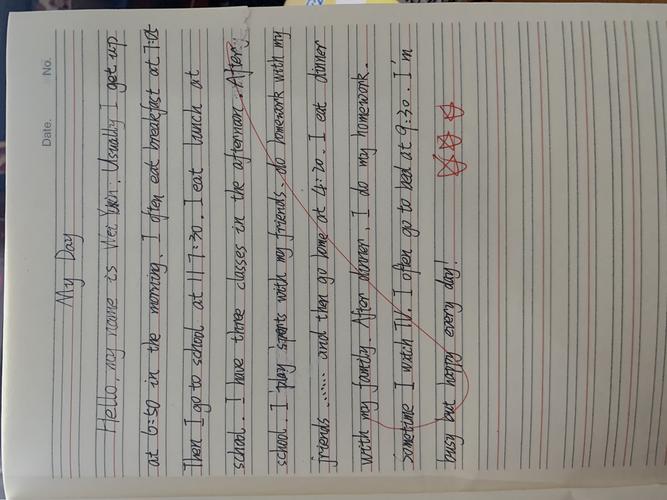 Date. No.
My Day
Hello, my name is Wei Yuan. Usually I get up
at 6:50 in the morning. I often eat breakfast at
Then I go to school at 11 7:30. I eat lunch at
school. I have three classes in the afternoon. After
school. I play sports with my friends. do homework with my
friends ...... and then go home at 4:20. I eat dinner
with my family. After dinner. I do my homework.
sometime I watch TV. I often go to bed at 9:30. I'm
busy but happy every day!